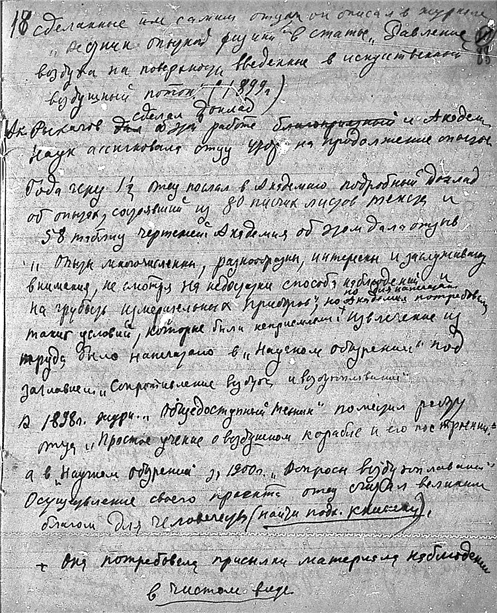 18 сделанные им самим отец он описал в журнале
"Вестник опытной физики" в статье "Давление
воздуха на поверхности введенные в искуственный
воздушный поток" 1899г)
сделал доклад
Ак. Рыкачов о эт. работе благоприятный и Академ.
Наук ассигновала отцу на продолжение опытов
Года через 1½ отец послал в Академию подробный доклад
об опытах, состоявший из 80 писчих листов текста и
58 таблиц чертежей. Академия об этом дала отзыв
"опыты многочисленны, разнообразны, интересны и заслуживают
внимания, не смотря на недостатки способа наблюдений и
на грубость измерительных приборов" но Академия потребовала
таких условий, которые были неприемлемы. Извлечение из
труда было напечатано в "Научном обозрении" под
заглавием "Сопротивление воздуха и воздухоплавание"
В 1898г. журн. "Общедоступный Техник" поместил работу
отца "Простое учение о воздушном корабле и его построении"
а в "Научном обозрении" 1900г. "Вопросы воздухоплавания"
Осуществление своего проекта отец считал великим
благом для человечества (найти подл. книжку).
+ Она потребовала присылки материала наблюдений
в чистом виде